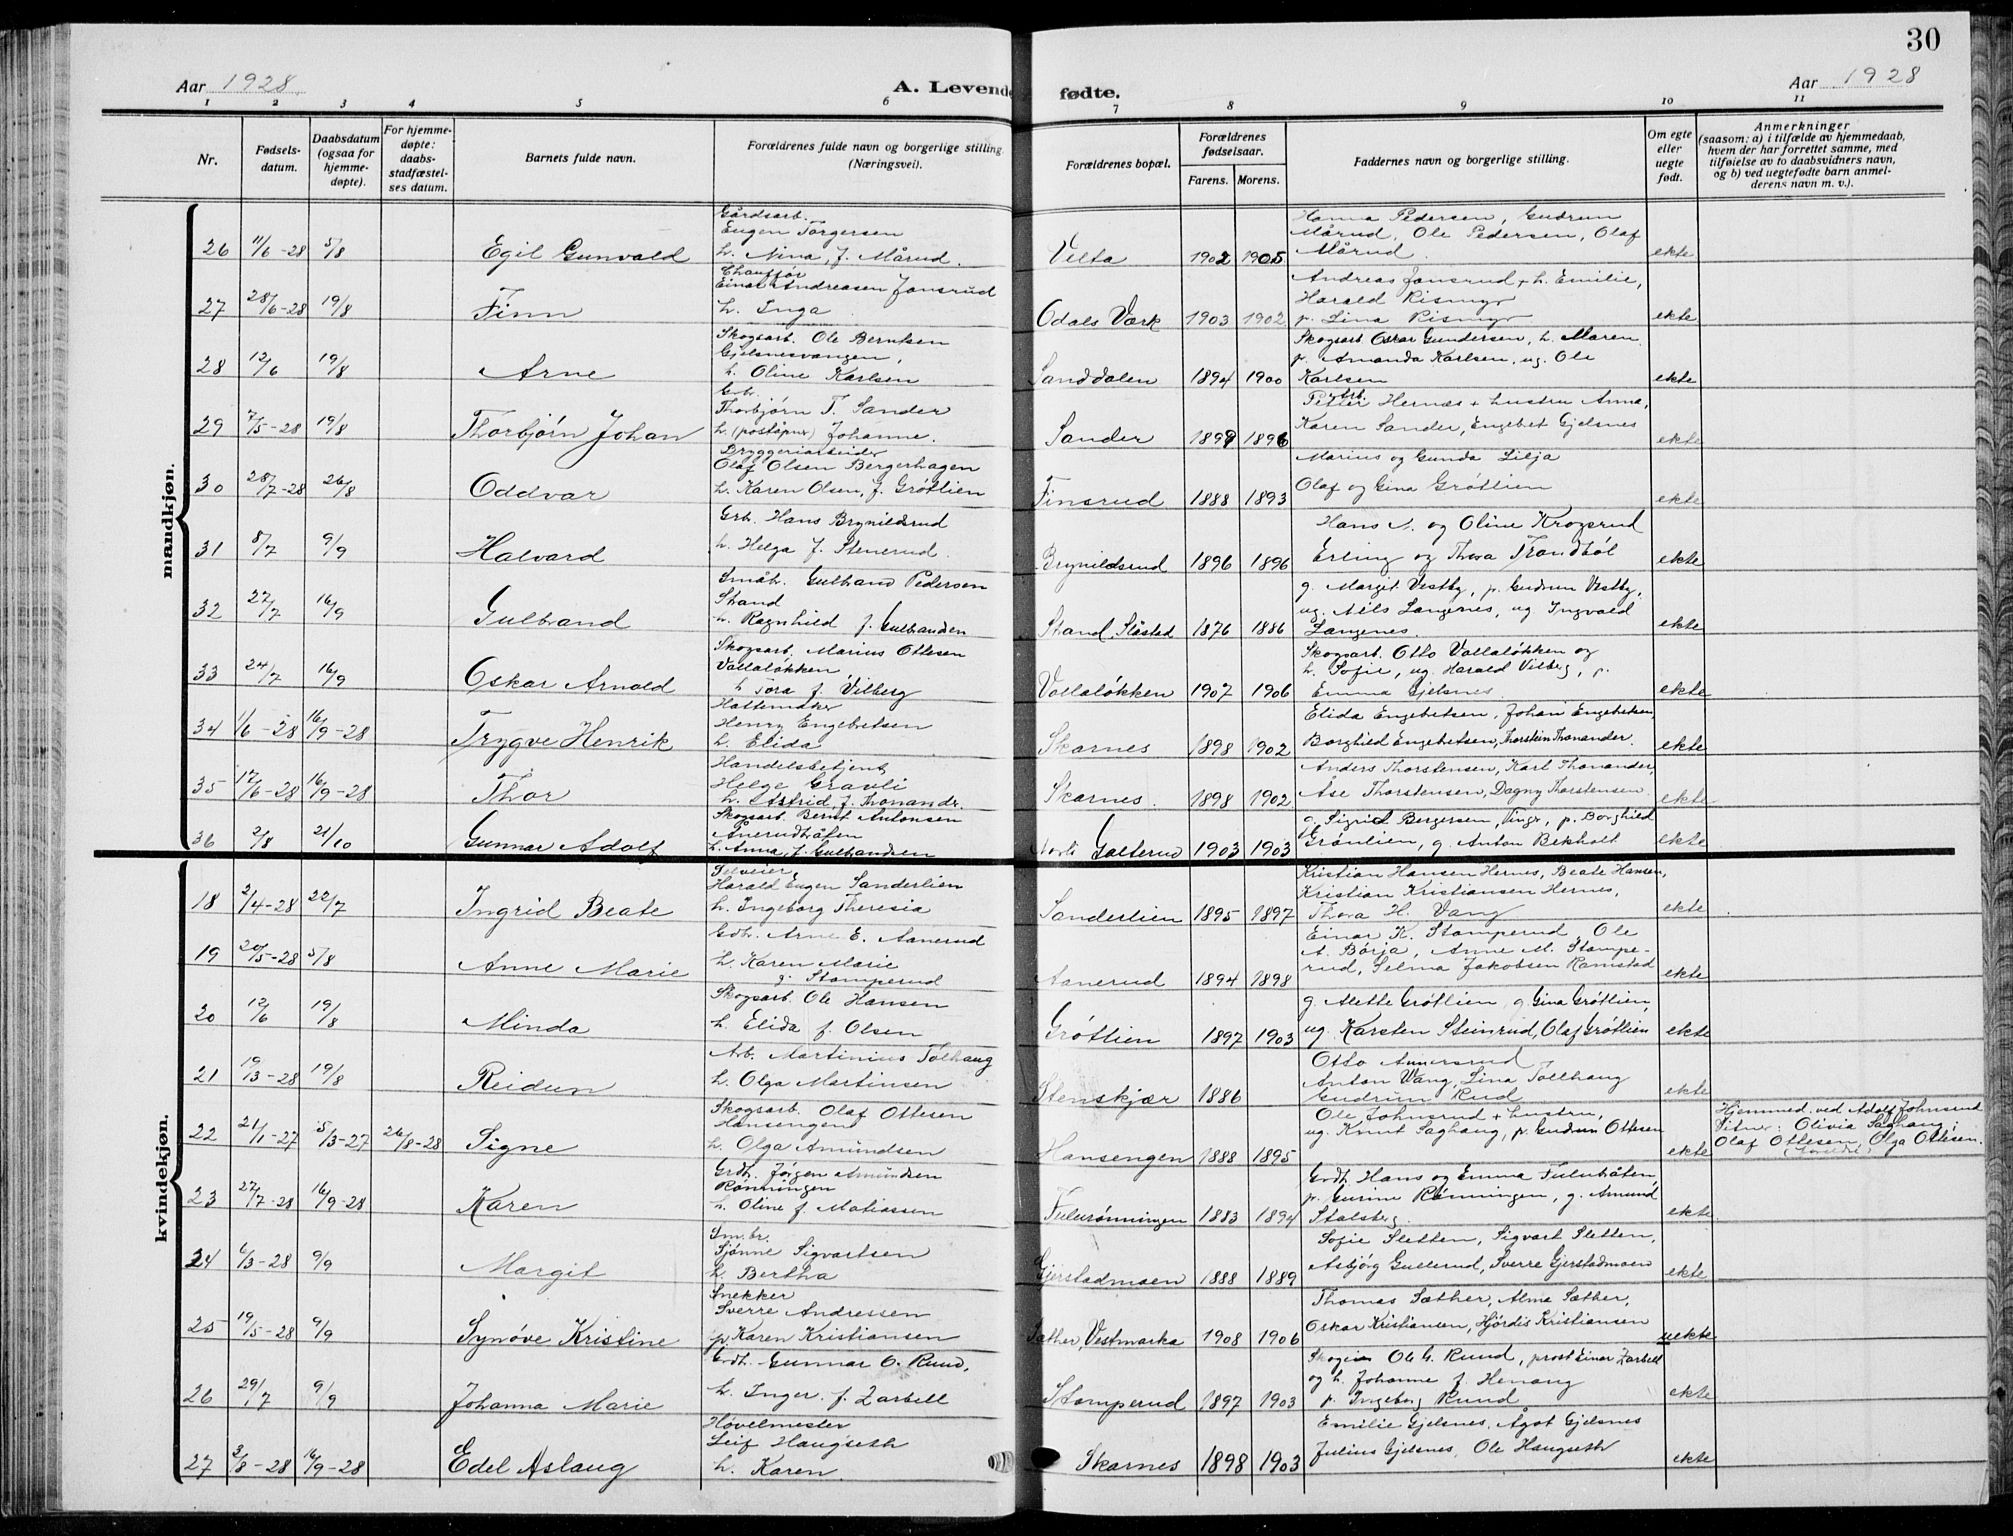 30
Aar 1928
A. Levende fødte.
Aar 1928
1 2 3 4 5 6 7 8 9 10 11
Nr.
Fødsels-
datum.
Daabsdatum
(ogsaa for
hjemme-
døpte).
For hjemme-
døpte:
daabs-
stadfæstel-
ses datum.
Barnets fulde navn.
Forældrenes fulde navn og borgerlige stilling.
(Næringsvei).
Forældrenes bopæl.
Forældrenes
fødselsaar.
Farens. Morens.
Faddernes navn og borgerlige stilling.
Om egte
eller
uegte
født.
Anmerkninger
(saasom: a) i tilfælde av hjemmedaab,
hvem der har forrettet samme, med
tilføielse av to daabsvidners navn,
og b) ved uegtefødte barn anmel-
derens navn m. v.).
mandkjøn.
26 11/6-28 5/8 Egil Gunvald
Gårdsarb.
Eugen Torgersen
h. Nina, f. Mårud.
Velta 1902 1905
Hanna Pedersen, Gudrun
Mårud, Ole Pedersen, Olaf
Mårud.
ekte
27 28/6-28 19/8 Finn
Chauffør
Einar Andreasen Jansrud
h. Inga
Odals Værk 1903 1902
Andreas Jansrud + h. Emilie,
Harald Rismyr
p. Lina Rismyr
ekte
28 12/6 19/8 Arne
Skogsarb. Ole Berntsen
Gjelsnesvangen,
h. Oline Karlsen
Sanddalen 1894 1900
Skogsarb Oskar Gundersen, h. Maren
p. Amanda Karlsen, ug. Ole
Karlsen
ekte
29 7/5-28 19/8 Thorbjørn Johan
Gbr.
Thorbjørn T. Sander
h. (poståpnr) Johanne.
Sander 1897 1896
Petter Arb. Hernæs + hustru Anna,
Karen Sander, Engebet Gjelsnes
ekte
30 28/7-28 26/8 Oddvar
Bryggeriarbeider
Olaf Olsen Bergerhagen
h. Karen Olsen, f. Grøtlien
Finsrud 1888 1893
Marius og Gunda Lilja
Olaf og Gina Grøtlien
ekte
31 8/7 9/9 Halvard
Grb. Hans Brynildsrud
h. Helga f. Stenerud
Brynildsrud 1896 1896
Hans N. og Oline Krogsrud
Erling og Thora Trondbøl
ekte
32 27/7 16/9 Gulbrand
Småb. Gulbrand Pedersen
Strand
h. Ragnhild f. Gulbrandsen
Strand, Slåstad 1876 1886
g. Margit Vestby, p. Gudrun Vestby,
ug. Nils Langenes, ug Ingvald
Langenes.
ekte
33 24/7 16/9 Oskar Arnold
Skogsarb. Marius Ottesen
Vallaløkken
h Tora f. Vilberg
Vallaløkken 1907 1906
Skogsarb. Otto Vallaløkken og
h. Sofie, ug. Harald Vilberg, p.
Emma Gjelsnes
ekte
34 1/6-28 16/9-28 Trygve Henrik
Hattemaker
Henry Engebretsen
h. Elida
Skarnes 1898 1902
Elida Engebretsen, Johan Engebretsen,
Borghild Engebretsen, Thorstein Thonander.
ekte
35 17/6-28 16/9-28 Thor
Handelsbetjent
Helge Gravli
h. Astrid, f. Thonandr.
Skarnes. 1898 1902
Anders Thorstensen, Karl Thonander,
Åse Thorstensen, Dagny Thorstensen
ekte
36 2/8 21/10 Gunnar Adolf
Skogsarb Bernt Antonsen
Anerudhåten
h. Anna, f. Gulbrandsen
Nord Galterud 1903 1903
g. Sigrid Bergersen, Vinger, p. Borghild
Grønlien, g. Anton Bekholt
ekte
kvindekjøn.
18 2/4-28 22/7 Ingrid Beate
Selveier
Harald Eugen Sanderlien
h. Ingeborg Theresia
Sanderlien 1895 1897
Kristian Hansen Hernes, Beate Hansen,
Kristian Kristiansen Hernes,
Thora H. Vang
ekte
19 20/5-28 5/8 Anne Marie
Gbr. Arne E. Aanerud
h. Karen Marie
f. Stomperud
Aanerud 1894 1898
Einar K. Stomperud, Ole
A. Børja, Anne M. Stompe-
rud, Selma Jakobsen Ramstad
ekte
20 12/6 19/8 Minda
Skogsarb. Ole Hansen
h. Elida f. Olsen
Grøtlien 1897 1903
g. Alette Grøtlien, g. Gina Grøtlien
ug. Karsten Steinrud, Olaf Grøtlien
ekte
21 19/3-28 19/8 Reidun
Arb. Martinius Tølhaug
h. Olga Martinsen
Stenskjær 1886
Otto Annersrud
Anton Wang, Lina Tollhaug
Gudrun Rud
ekte
22 21/1-27 5/3-27 26/8-28 Signe
Skogsarb. Olaf Ottesen
Hansengen
h. Olga Amundsen
Hansengen 1888 1895
Ole Johnsrud + hustru,
ug. Knut Saghaug, p. Gudrun Ottesen
ekte
Hjemmed. ved Adolf Johnsrud
Vitner: Olivia Saghaug,
Olaf Ottesen, Olga Ottesen.
23 27/7-28 16/9-28 Karen
Grdb. Jørgen Amundsen
Rønningen
h. Oline f. Matiassen
Fulurønningen 1883 1894
Grdb Hans og Emma Fuluhåten,
p. Gurine Rønningen, g. Amund
Stalsberg.
ekte
24 6/3-28 9/9 Margit
Sm.br.
Sjønne Sigvartsen
h. Bertha
Gjerstadmoen 1888 1889
Sofie Sletten, Sigvart Sletten,
Asbjørg Gullerud, Sverre Gjerstadmoen
ekte
25 19/5-28 9/9 Synøve Kristine
Snekker
Sverre Andressen
p Karen Kristiansen
Sæther, Vestmarka 1908 1906
Thomas Sæther, Alma Sæther,
Oskar Kristiansen, Hjørdis Kristiansen
uekte
26 29/7 9/9 Johanna Marie
Grdb. Gunnar O. Ruud,
h. Inger f. Zarbell
Stomperud 1897 1903
Skogeier Ole G. Ruud, prost Einar Zarbell
og h. Johanne f Henang
p. Ingeborg Ruud
ekte
27 3/8-28 16/9-28 Edel Aslaug
Høvelmester
Leif Haugseth
h. Karen.
Skarnes 1898 1903
Emilie Gjelsnes, Ågot Gjelsnes
Julius Gjelsnes, Ole Haugseth
ekte